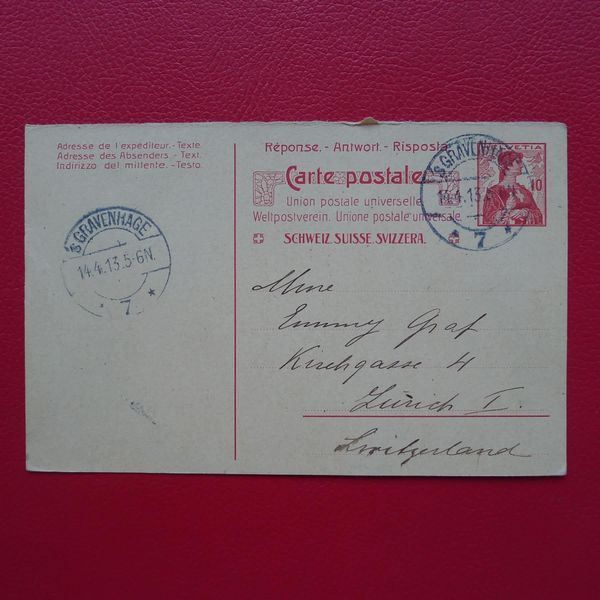 Adresse de l'expéditeur.-Texte.
Adresse des Absenders.-Text.
Indirizzo del mittente.-Testo.
Réponse. - Antwort. - Risposta
Carte postale
Union postale universelle.
Weltpostverein. Unione postale universale.
SCHWEIZ. SUISSE. SVIZZERA.
HELVETIA
10
'S GRAVENHAGE
14.4.13.
7
'S GRAVENHAGE
14.4.13.5-6N.
7
Mme
Emmy Graf
Kirchgasse 4
Zürich I.
Switzerland